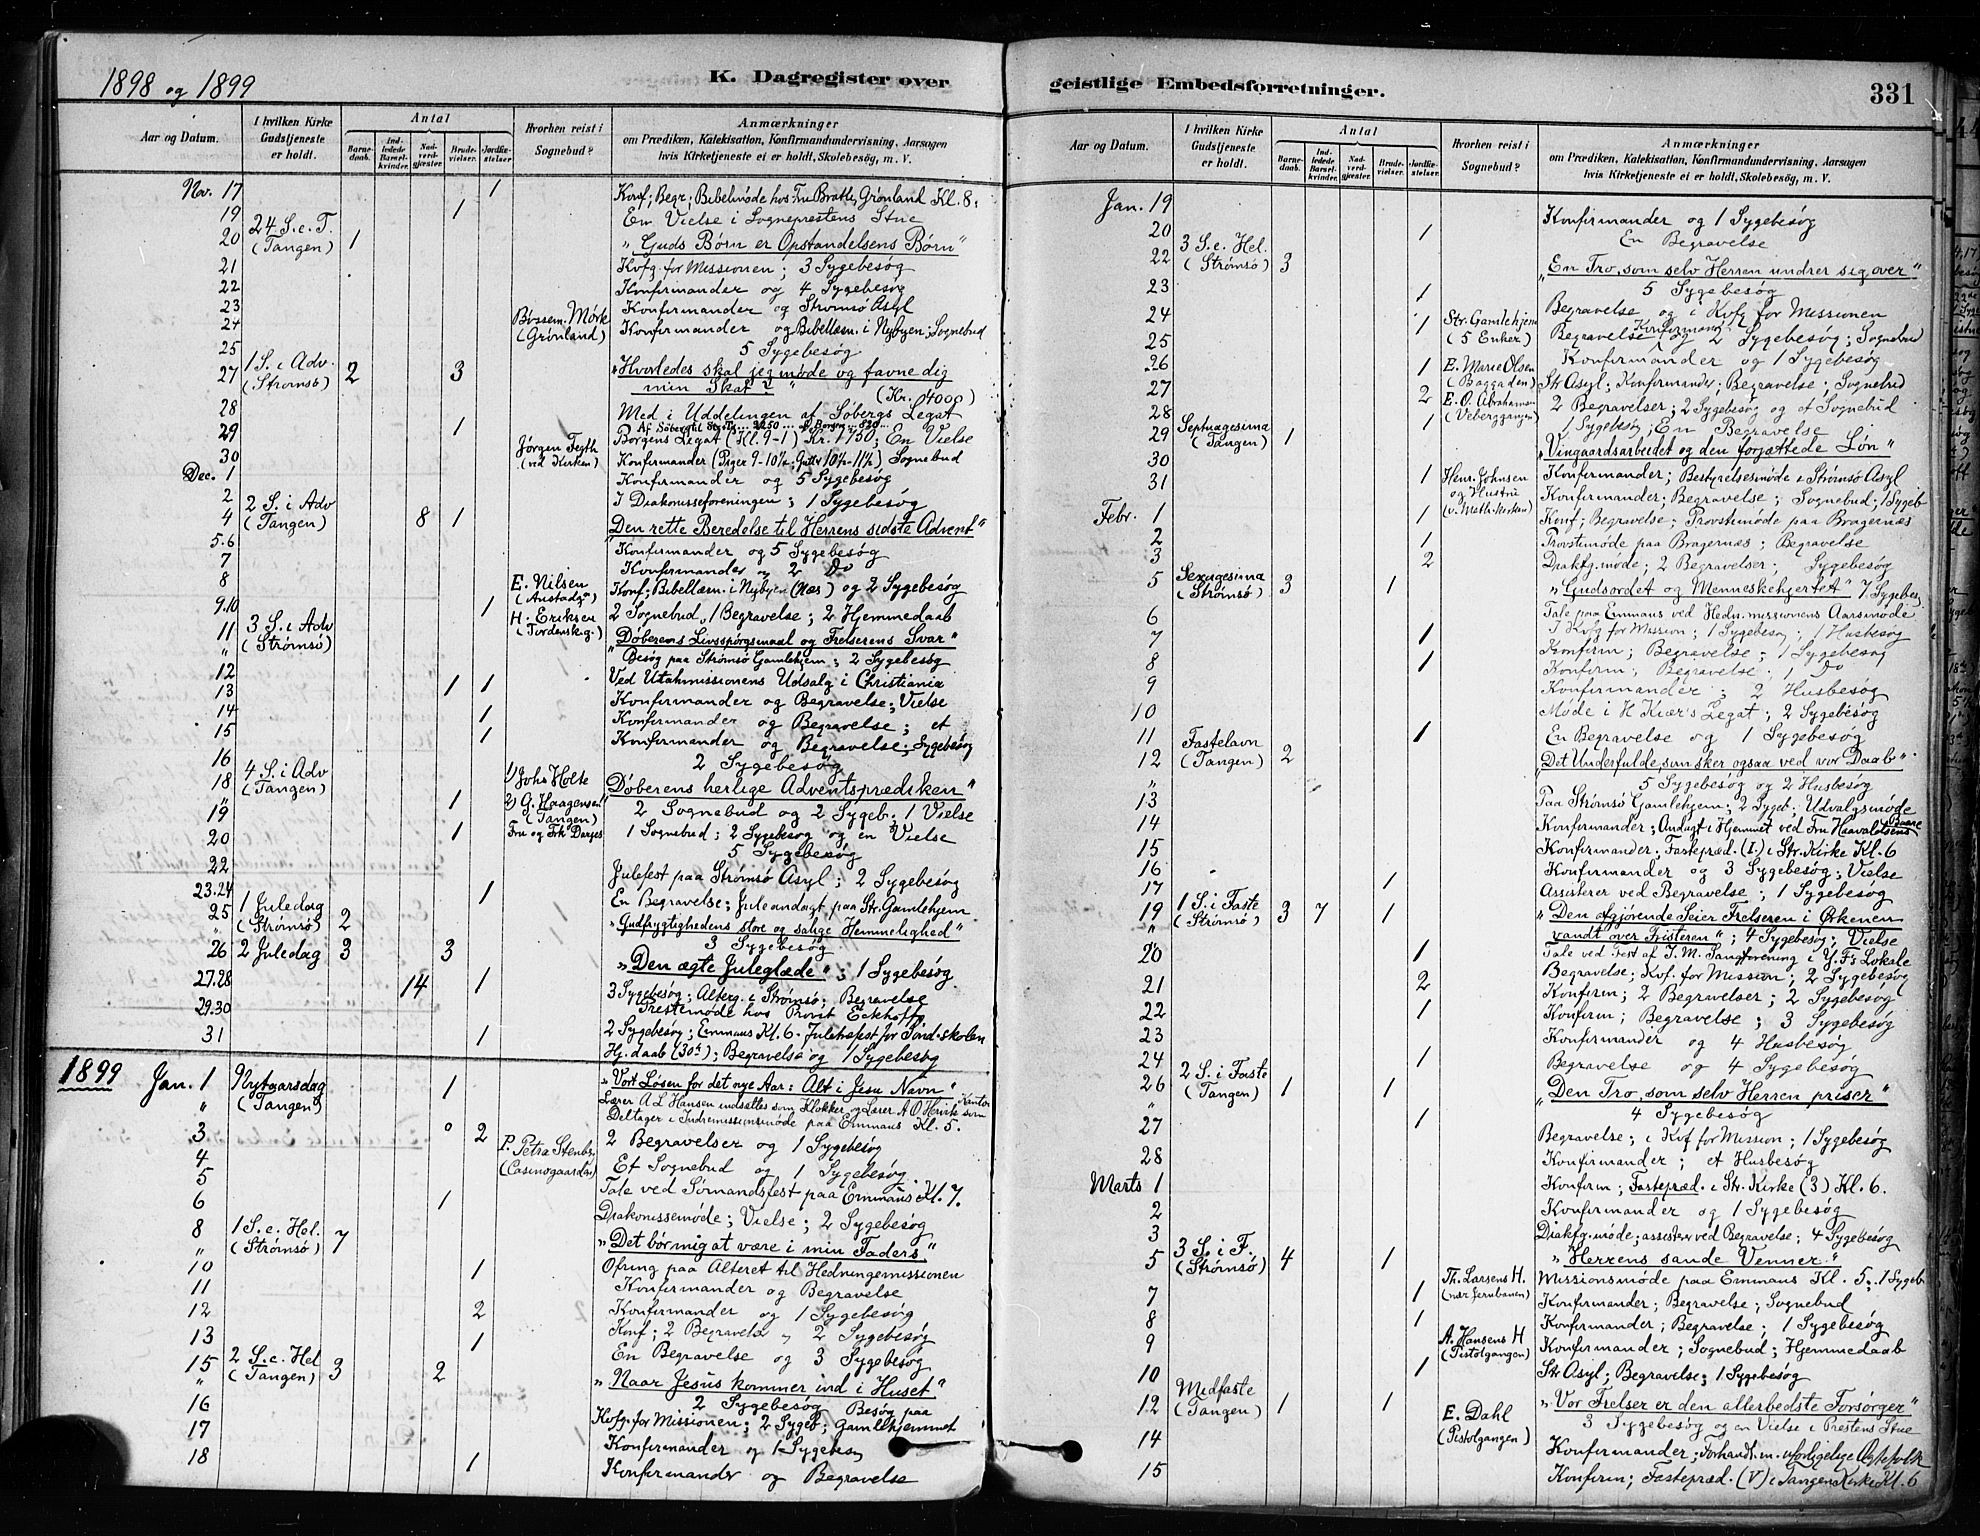 1898 og 1899
K. Dagregister over
geistlige Embedsforretninger.
331
Aar og Datum.
I hvilken Kirke Gudstjeneste er holdt.
Antal
Barnedaab.
Indledede Barselkvinder.
Nadvergjester
Brudevielser.
Jordfæstelser
Hvorhen reist i Sognebud?
Anmærkninger
om Prædiken, Katekisation, Konfirmandundervisning, Aarsagen
hvis Kirketjeneste ei er holdt, Skolebesøg, m. V.
Nov. 17 1 Konf; Begr; Bibelmøde hos Fru Bratli, Grønland Kl. 8;
19 1 En Vielse i Sogneprestens Stue
20 24 S. e. T. (Tangen) 1 "Guds Børn er Opstandelsens Børn"
21 Kvfg. for Missionen; 3 Sygebesøg
22 Konfirmander og 4 Sygebesøg
23 Konfirmander og Strømsø Asyl
24 Bøssem. Mørk (Grønland) Konfirmander og Bibellæsn. i Nybyen; Sognebud
25 5 Sygebesøg
27 1 S. i Adv. (Strømsø) 2 3 "Hvorledes skal jeg møde og favne dig
min Skat?"
28 Med i Uddelingen af Søbergs Legat (Kr. 4000)
29 1 Borgens Legat (Kl. 9-1) Kr. 1750; En Vielse
30 Jørgen Tegth (ved Kirken) Konfirmander (Piger 9-10½; Gutter 10½-11½) Sognebud
Dec. 1 Konfirmander og 5 Sygebesøg
2 I Diakonisseforeningen; 1 Sygebesøg
4 2 S. i Adv (Tangen) 8 1 "Den rette Beredelse til Herrens sidste Advent"
5.6 Konfirmander og 5 Sygebesøg
7 Konfirmander og 2 Do
8 E. Nilsen (Austadg.) Konf; Bibellæsn. i Nybyen (Næs) og 2 Sygebesøg
9.10 1 H. Eriksen (Tordenskg.) 2 Sognebud, 1 Begravelse; 2 Hjemmedaab
11 3 S. i Adv (Strømsø) "Døberens Livsspørgsmaal og Frelserens Svar"
" Besøg paa Strømsø Gamlehjem; 2 Sygebesøg
12 Ved Utahmissionens Udsalg i Christiania
13 1 1 Konfirmander og Begravelse; Vielse
14 1 Konfirmander og Begravelse; et
15 1 Konfirmander og Begravelse; Sygebesøg
16 2 Sygebesøg
18 4 S. i Adv (Tangen) 1) John Holte "Døberens herlige Adventsprædiken"
" 1 2) G. Haagensen (Tangen) 2 Sognebud og 2 Sygeb; 1 Vielse
19
20 1 Fru og Frk Darjes 1 Sognebud; 2 Sygebesøg og en Vielse
22 5 Sygebesøg
23.24 1 Julefest paa Strømsø Asyl; 2 Sygebesøg
En Begravelse; Juleandagt paa Str. Gamlehjem
25 1 Juledag (Strømsø) 2 "Gudfrygtighedens store og salige Hemmelighed"
" 3 Sygebesøg
26 2 Juledag 3 3 "Den ægte Juleglæde"; 1 Sygebesøg
27.28 14 1 3 Sygebesøg; Alterg. i Strømsø; Begravelse
29.30 Prestemøde hos Provst Eckhoff
2 Sygebesøg; Emmaus Kl. 6. Juletræfest for Sønd.skolen
31 1 Hj. daab (30te); Begravelse og 1 Sygebesøg
1899 Jan. 1 Nytaarsdag (Tangen) 1 "Vort Løsen for det nye Aar: Alt i Jesu Navn"
Lærer A L Hansen indsattes som Klokker og Lærer A O Hvirk som Kantor
" Deltager i Indremissionsmøde paa Emmaus Kl. 5.
3 0 2 2 Begravelser og 1 Sygebesøg
4 P. Petra Stenbg. (Casinogaarden) Et Sognebud og 1 Sygebesøg
5 Tale ved Sømandsfest paa Emmaus Kl. 7.
6 1 Diakonissemøde; Vielse; 2 Sygebesøg
8 1 S. e. Hel. (Strømsø) 7 "Det bør mig at være i min Faders"
" Ofring paa Alteret til Hedningemissionen
10 1 Konfirmander og Begravelse
11 Konfirmander og 1 Sygebesøg
12 2 Konf; 2 Begravels. og 2 Sygebesøg
13 1 En Begravelse og 3 Sygebesøg
15 2 S. e. Hel (Tangen) 3 2 "Naar Jesus kommer ind i Huset"
" 2 Sygebesøg Besøg paa
16 Kvfg. for Missionen; 2 Sygeb; Gamlehjemmet
17 Konfirmander og 1 Sygebesøg
18 1 Konfirmander og Begravelse
Aar og Datum.
I hvilken Kirke Gudstjeneste er holdt.
Antal
Barnedaab.
Indledede Barselkvinder.
Nadvergjester
Brudevielser.
Jordfæstelser.
Hvorhen reist i Sognebud?
Anmærkninger
om Prædiken, Katekisation, Konfirmandundervisning, Aarsagen
hvis Kirketjeneste ei er holdt, Skolebesøg, m. V.
Jan. 19 Konfirmander og 1 Sygebesøg
20 1 En Begravelse
22 3 S. e. Hel. (Strømsø) 3 "En Tro, som selv Herren undrer sig over"
5 Sygebesøg
23 1 Begravelse og i Kvfg for Missionen
24 1 Str. Gamlehjem (5 Enker) Begravelse og 2 Sygebesøg; Sognebud
25 Konfirmander og 1 Sygebesøg
26 1 E. Marie Olsen (Baggaden) Str Asyl; Konfirmander; Begravelse; Sognebud
27 2 E. O. Abrahamsen (Veberggangen) 2 Begravelser; 2 Sygebesøg og et Sognebud
28 1 1 Sygebesøg; En Begravelse
29 Septuagesima (Tangen) 1 "Vingaardsarbeidet og den forjættede Løn"
30 Konfirmander; Bestyrelsesmøde i Strømsø Asyl
31 1 Henr. Johnsen og Hustru Konfirmander; Begravelse; Sognebud; 1 Sygeb
Febr. 1 1 Konf; Begravelse; Provstimøde paa Bragernæs
2 1 Provstimøde paa Bragernæs; Begravelse
3 2 Diakfg. møde; 2 Begravelser; Sygebesøg
5 Sexagesima (Strømsø) 3 1 "Gudsordet og Menneskehjertet" 7 Sygebes
Tale paa Emmaus ved Hedn. missionens Aarsmøde
6 I Kvfg for Mission; 1 Sygebesøg; 1 Husbesøg
7 1 Konfirm; Begravelse; 1 Sygebesøg
8 1 Konfirm; Begravelse; 1 Do
9 Konfirmander; 2 Husbesøg
10 Møde i H Kiær's Legat; 2 Sygebesøg
11 1 En Begravelse og 1 Sygebesøg
12 Fastelavn (Tangen) 2 "Det Underfulde, som sker ogsaa ved vor Daab"
" 5 Sygebesøg og 2 Husbesøg
13 Paa Strømsø Gamlehjem; 2 Sygeb; Udvalgsmøde
14 Konfirmander; Andagt i Hjemmet ved Fru Haavaldsens Baare
15 Konfirmander; Fastepræd. (I.) i Str. Kirke Kl. 6
16 Konfirmander og 3 Sygebesøg; Vielse
17 1 Assisterer ved Begravelse; 1 Sygebesøg
19 1 S. i Faste (Strømsø) 3 7 1 "Den afgjørende Seier Frelseren i Ørkenen
" vandt over Fristeren"; 4 Sygebesøg; Vielse
20 1 Tale ved Fest af I. M. Sangforening i Y. F's Lokale
Begravelse; Kvf. for Mission; 2 Sygebesøg
21 2 Konfirm; 2 Begravelser; 2 Sygebesøg
22 1 Konfirm; Begravelse; 3 Sygebesøg
23 Konfirmander og 4 Husbesøg
24 1 Begravelse og 4 Sygebesøg
26 2 S. i Faste (Tangen) 1 1 "Den Tro, som selv Herren priser"
" 4 Sygebesøg
27 1 Begravelse; i Kvf for Mission; 1 Sygebesøg
28 Konfirmander; et Husbesøg
Marts 1 Konfirm; Fastepræd. i Str. Kirke (3) Kl. 6.
2 Konfirmander og 1 Sygebesøg
3 Diakfg. møde; assisterer ved Begravelse; 4 Sygebesøg
5 3 S. i F. (Strømsø) 4 1 "Herrens sande Venner."
Missionsmøde paa Emmaus Kl. 5; 1 Sygeb
7 1 Th. Larsens H. (nær Jernbanen) Konfirmander; Begravelse; Sognebud
8 1 Konfirmander; Begravelse; 1 Sygebesøg
9 A. Hansens H (Pistolgangen) Konfirmander; Sognebud; Hjemmedaab
10 1 Str Asyl; Begravelse; 1 Sygebesøg
12 Midfaste (Tangen) 1 1 "Vor Frelser er den allerbedste Forsørger"
E. Dahl (Pistolgangen) 3 Sygebesøg og en Vielse i Prestens Stue
14 Konfirmander; Forhandl. m. uforligelige Ægtefolk
15 Konfirm; Fastepræd. (V) i Tangen Kirke Kl. 6